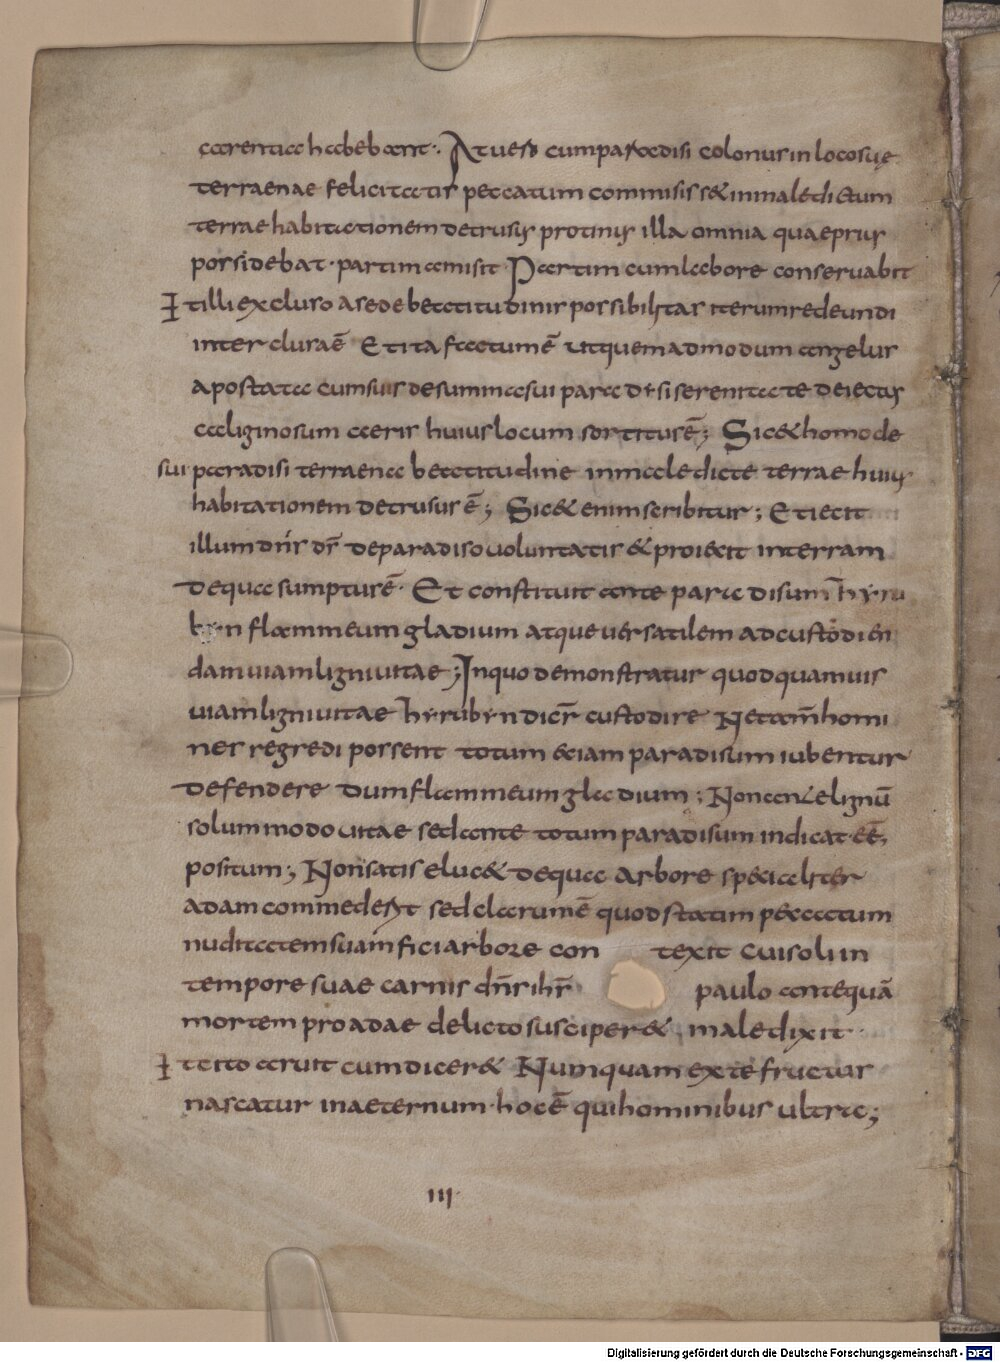 carentia habebant·. At uero cum paradisi colonus in loco suę
terraenae felicitatis peccatum commisisset in maledictum
terrae habitationem detrusus protinus illa omnia quae prius
possidebat· partim amisit Partim cum labore conservabit
Et illi excluso a sede beatitudinis possibilitas iterum redeundi
inter clusa ē Et ita factum ē ut quemadmodum angelus
apostata cum suis de summa sui para disi serenitate deiectus
caliginosum aeris huius locum sortitus ē; Sic & homo de
sui paradisi terraena beatitudine in maledicte terrae huius
habitationem detrusus ē; Sic & enim scribitur; Et iecit
illum dn̄s ds̄ de paradiso uoluntatis & proiecit in terram
de qua sumptus ē· Et constituit ante paradisum hyru
byn flammeum gladium atque uersatilem ad custodien
dam uiam ligni uitae; In quo demonstratur quod quamuis
uiam ligni uitae hyrubyn dicr̄ custodire Ne tam̄ homi
nes regredi possent totum &iam paradisum iubentur
defendere dum flammeum gladium; Non ante lignū
solummodo uitae sed ante totum paradisum indicat eē
positum; Non satis eluc& de qua arbore speciceliter
adam commedesset sed clarum ē quod statim peccatum
nuditatem suam fici arbore con texit cui soli in
tempore suae carnis dn̄s ihs̄ paulo antequā
mortem pro adae delicto susciper& maledixit
Et ita aruit cum dicer& Numquam ex te fructus
nascatur in aeternum· hoc ē qui hominibus ultra;
III·
Digitalisierung gefördert durch die Deutsche Forschungsgemeinschaft - DFG